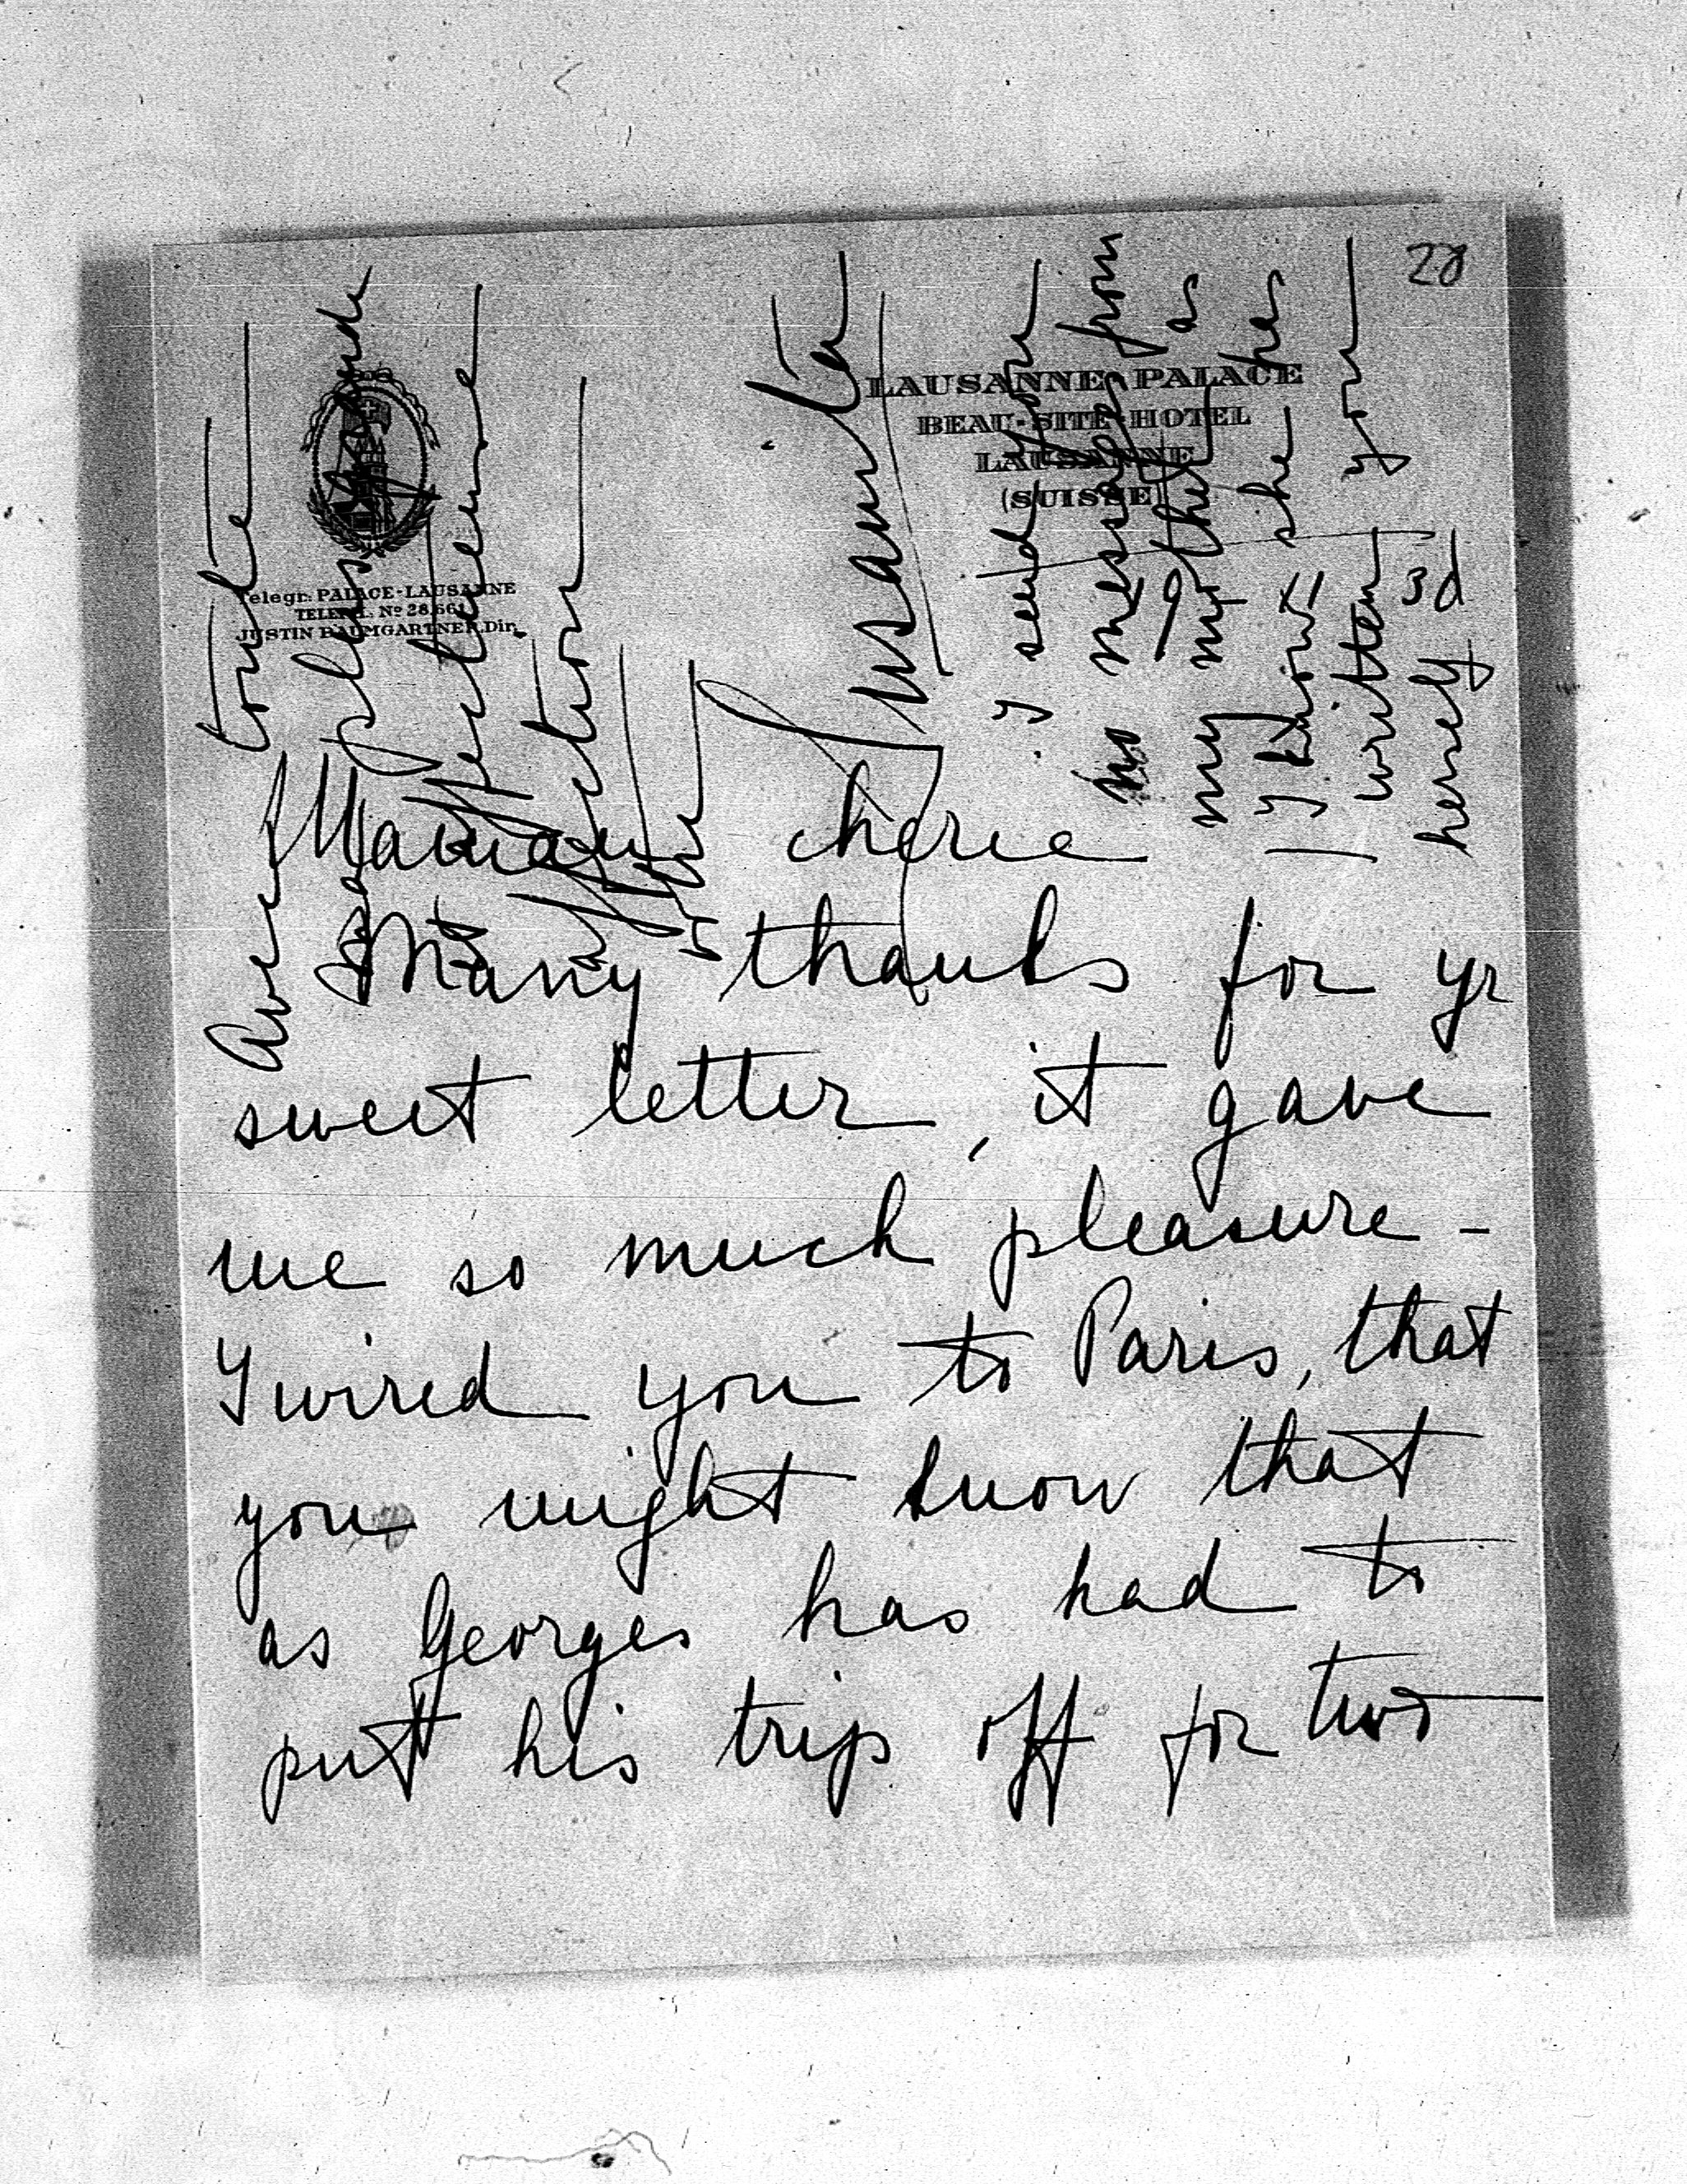 28
LAUSANNE-PALACE
BEAU-SITE-HOTEL
LAUSANNE
(SUISSE)
Telegr: PALACE-LAUSANNE
TELEPH. Nº 28.661
JUSTIN BAUMGARTNER, Dir.
3d
Maman cherie
Many thanks for yr
sweet letter, it gave
me so much pleasure -
I wired you to Paris, that
you might know that
as Georges has had to
put his trip off for two
Avec toute
plus
affection
ta
I send you
no message from
my mother as
I know she has
written you
herself